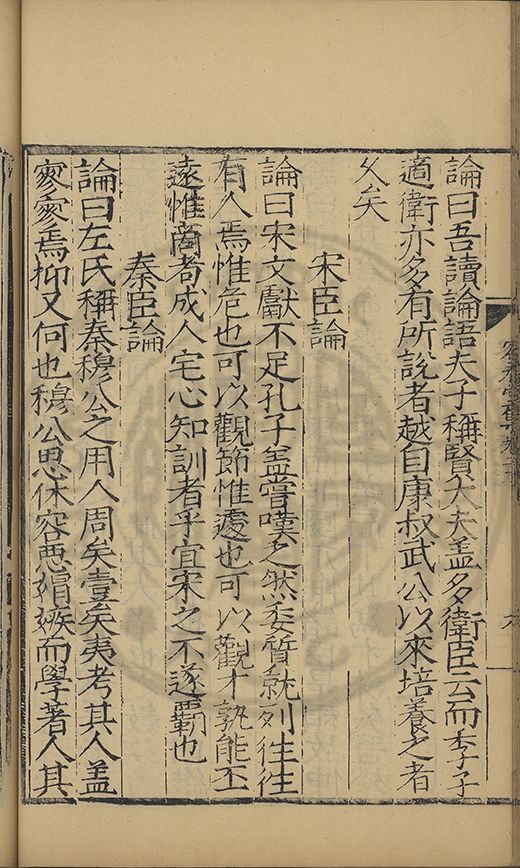 論曰吾讀論語夫子稱賢大夫盖多衛臣云而季子
適衛亦多有所說者越自康叔武公以來培養之者
乆矣
宋臣論
論曰宋文獻不足孔子盖嘗嘆之然委質就列往往
有人焉惟危也可以觀節惟遽也可以觀才孰能丕
遠惟商耇成人宅心知訓者乎宜宋之不遂霸也
秦臣論
論曰左氏稱秦穆公之用人周矣壹矣夷考其人盖
寥寥焉抑又何也穆公思休容惡媢嫉而學著人其